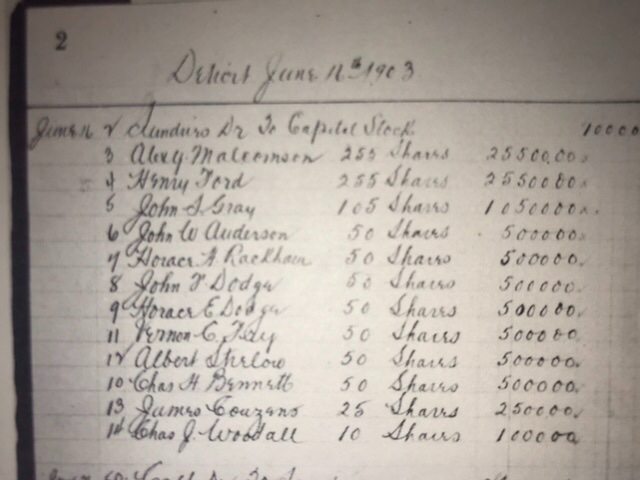 2
Detroit June 16th 1903
June 16 2 Sundries Dr To Capital Stock 10000
3 Alex Y. Malcomson 255 Shares 2550000
4 Henry Ford 255 Shares 2550000
5 John S. Gray 105 Shares 1050000
6 John W Anderson 50 Shares 500000
7 Horace H. Rackham 50 Shares 500000
8 John F. Dodge 50 Shares 500000
9 Horace E. Dodge 50 Shares 500000
11 Vernon C. Fry 50 Shares 500000
12 Albert Strelow 50 Shares 500000
10 Chas H. Bennett 50 Shares 500000
13 James Couzens 25 Shares 250000
14 Chas J. Woodall 10 Shares 100000